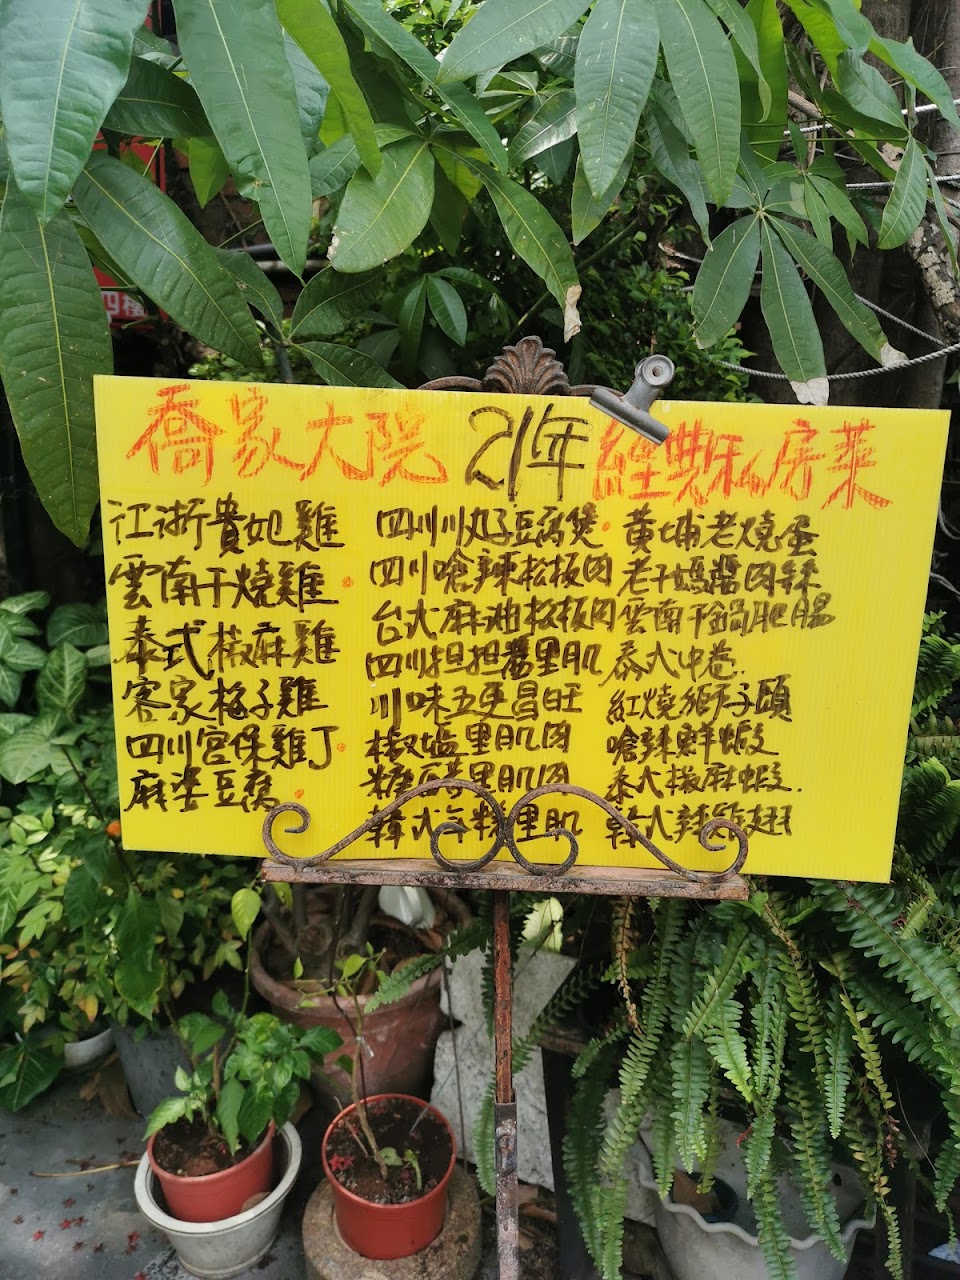 喬家大院 21年 經典私房菜
江浙貴妃雞
雲南干燒雞
泰式椒麻雞
客家梅子雞
四川宮保雞丁
麻婆豆腐
四川川丸子豆腐煲
四川嗆辣松板肉
台大麻油松板肉
四川担担醬里肌
川味五更昌旺
椒塩里肌肉
糖醋里肌肉
韓式年糕里肌
黃埔老燒蛋
老干媽醬肉絲
雲南干鍋肥腸
泰式中卷
紅燒獅子頭
嗆辣鮮蝦
泰式椒麻蝦
韓式辣雞翅